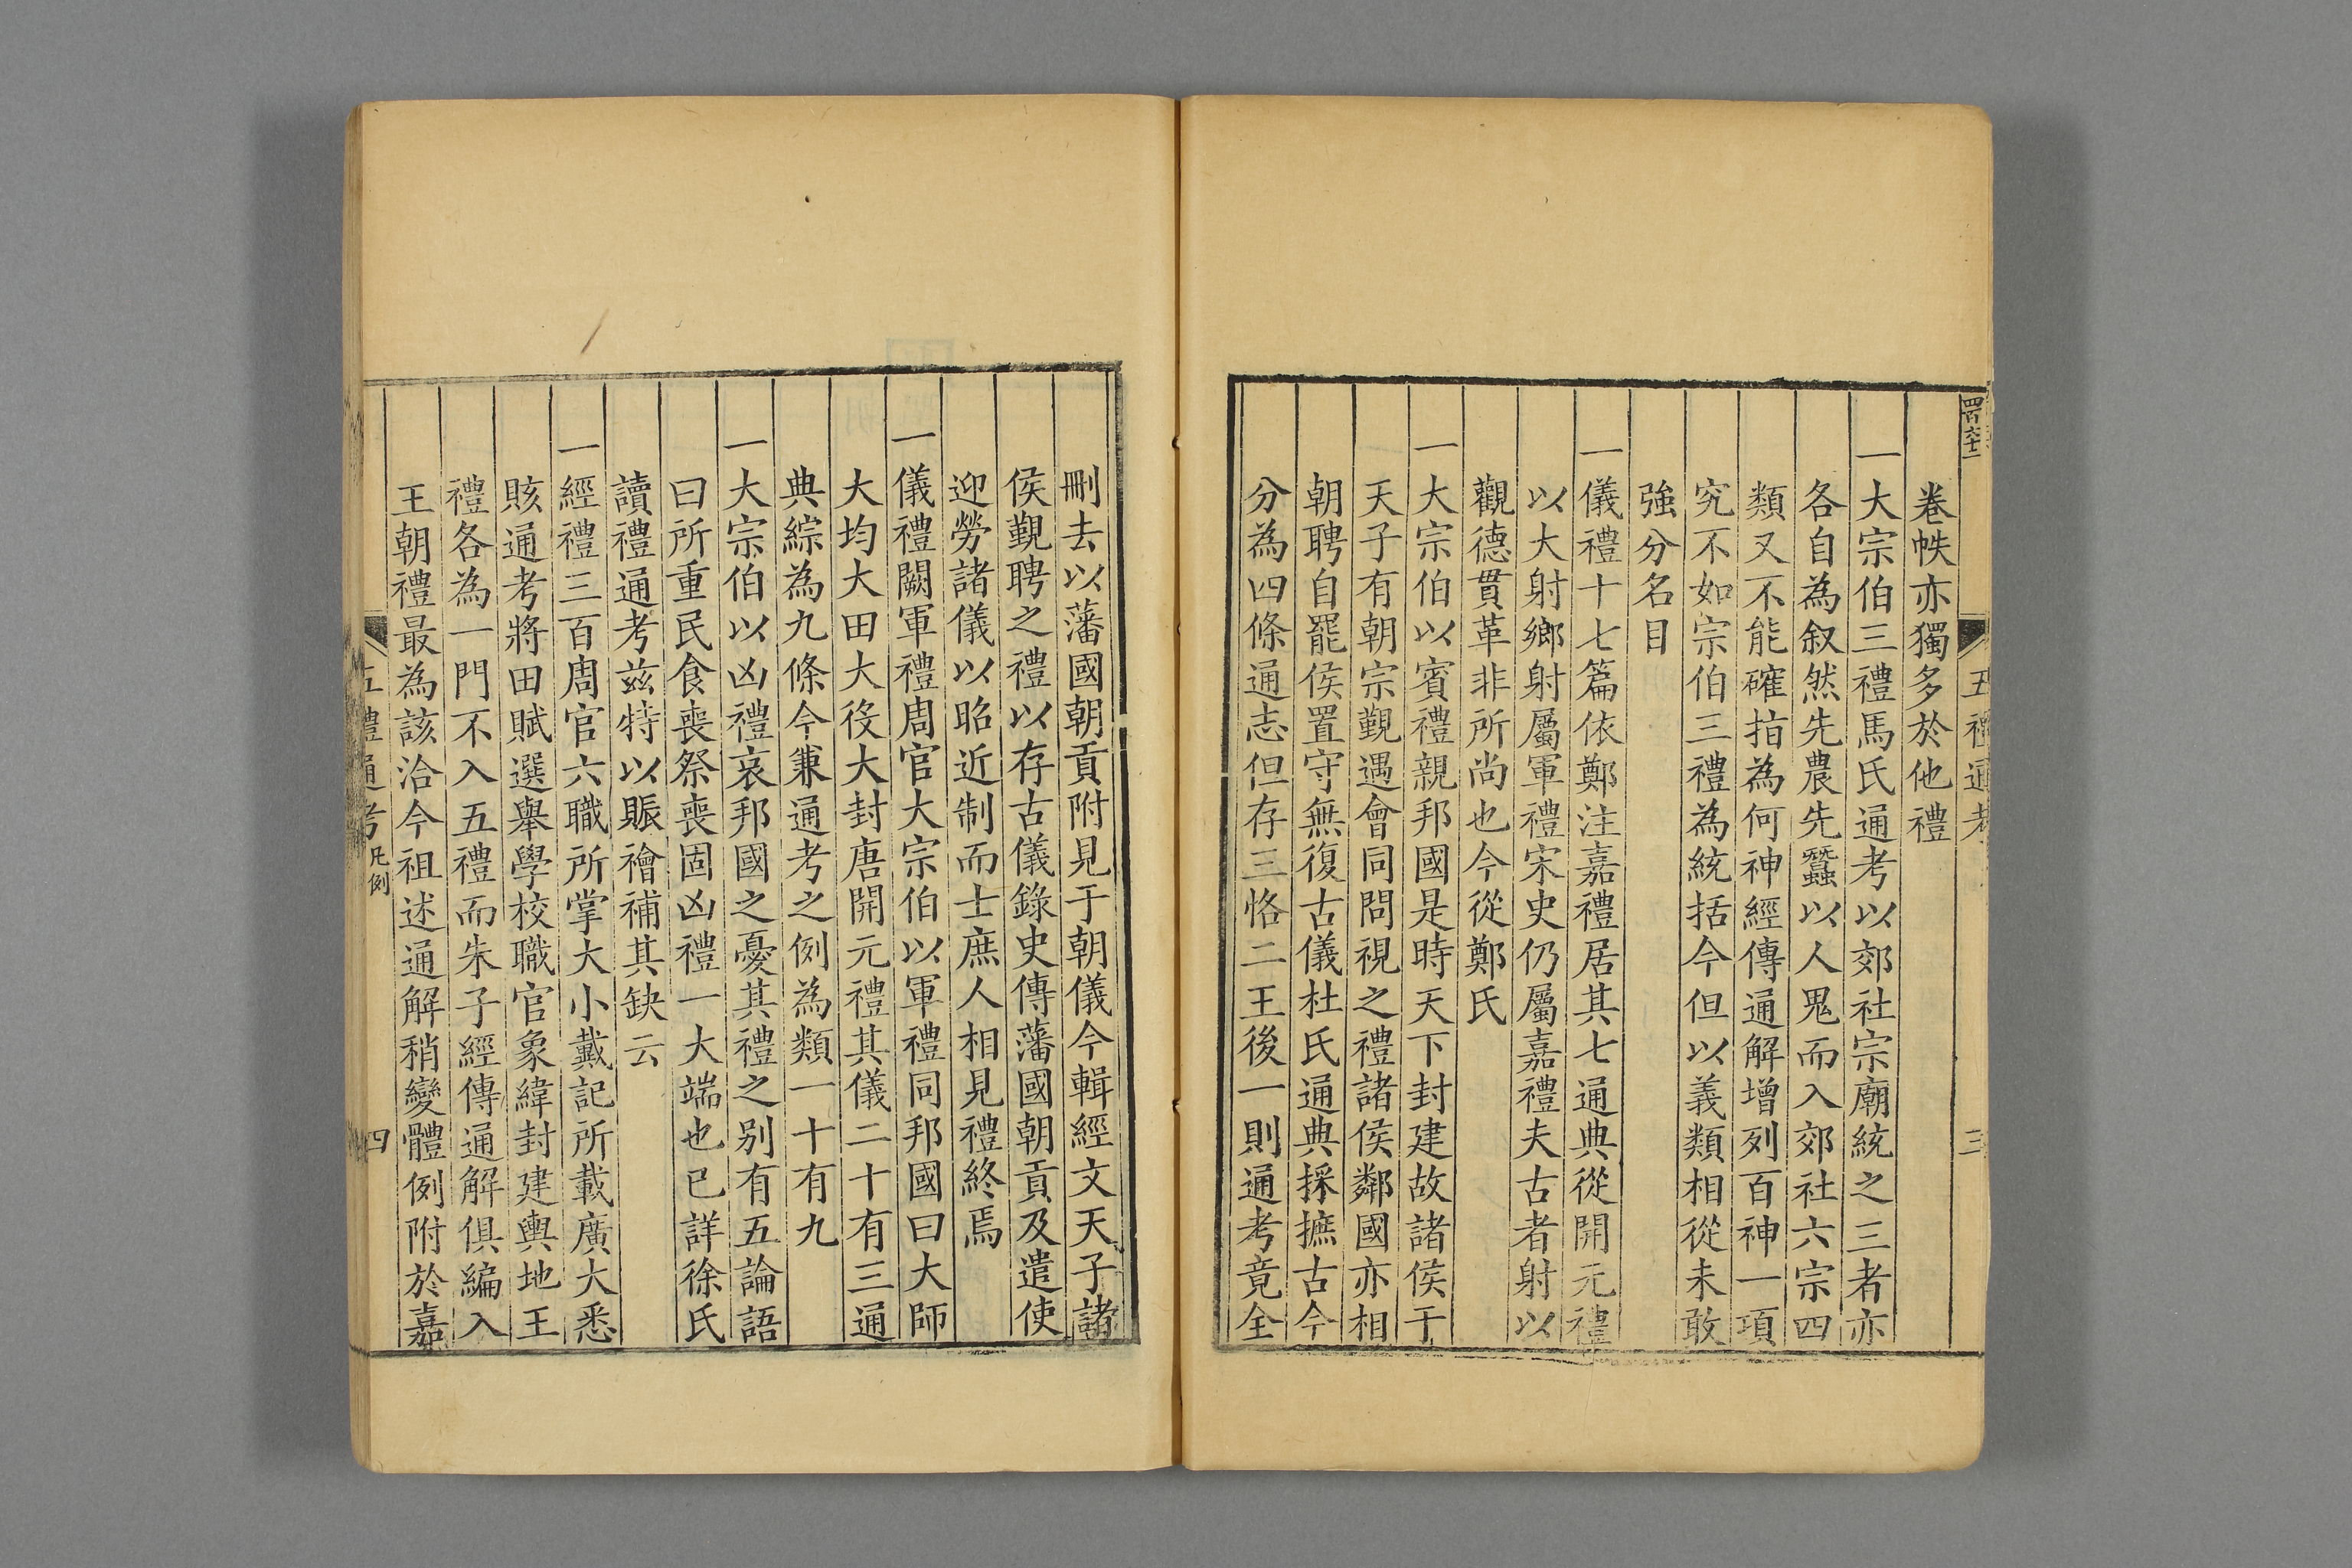 五禮通考
三
卷帙亦獨多於他禮
一大宗伯三禮馬氏通考以郊社宗廟統之三者亦
各自為叙然先農先蠶以人鬼而入郊社六宗四
類又不能確指為何神經傳通解增列百神一項
究不如宗伯三禮為統括今但以義類相從未敢
強分名目
一儀禮十七篇依鄭注嘉禮居其七通典從開元禮
以大射鄉射屬軍禮宋史仍屬嘉禮夫古者射以
觀德貫革非所尚也今從鄭氏
一大宗伯以賓禮親邦國是時天下封建故諸侯于
天子有朝宗覲遇會同問視之禮諸侯鄰國亦相
朝聘自罷侯置守無復古儀杜氏通典採摭古今
分為四條通志但存三恪二王後一則通考竟全
刪去以藩國朝貢附見于朝儀今輯經文天子諸
侯覲聘之禮以存古儀錄史傳藩國朝貢及遣使
迎勞諸儀以昭近制而士庶人相見禮終焉
一儀禮闕軍禮周官大宗伯以軍禮同邦國曰大師
大均大田大役大封唐開元禮其儀二十有三通
典綜為九條今兼通考之例為類一十有九
一大宗伯以凶禮哀邦國之憂其禮之別有五論語
曰所重民食喪祭喪固凶禮一大端也已詳徐氏
讀禮通考茲特以賑禬補其缺云
一經禮三百周官六職所掌大小戴記所載廣大悉
賅通考將田賦選舉學校職官象緯封建輿地王
禮各為一門不入五禮而朱子經傳通解俱編入
王朝禮最為該洽今祖述通解稍變體例附於嘉
五禮通考 凡例
四